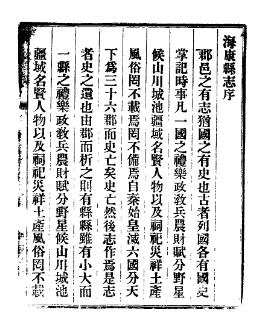 海康縣志序
郡邑之有志猶國之有史也古者列國各有國史
掌記時事凡一國之禮樂政教兵農財賦分野星
候山川城池疆域名賢人物以及祠祀災祥土產
風俗罔不載焉罔不備焉自秦始皇滅六國分天
下爲三十六郡而史亡矣史亡然後志作焉是志
者史之遺也由郡而析之則有縣縣雖有小大而
一縣之禮樂政教兵農財賦分野星候山川城池
疆域名賢人物以及祠祀災祥土產風俗罔不載